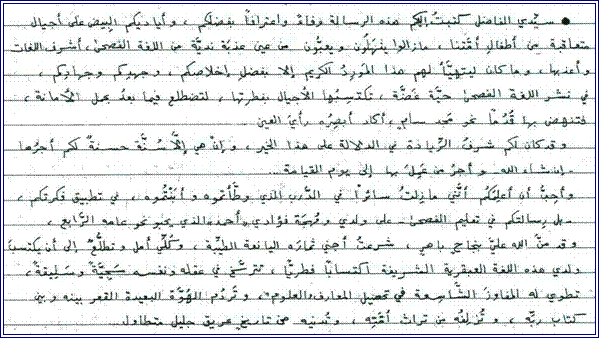 ● سيّدي الفاضل كتبتُ إليكم هذه الرسالة وفاءً واعترافاً بفضلكم ، وأياديكم البيض على أجيال
متعاقبة من أطفال أمّتنا ، مازالوا ينهَلُون ويعبُّون من عين عذبة نديّة من اللغة الفصحى، أشرف اللغات
وأعذبها ، وما كان ليتهيَّأ لهم هذا المَورِدُ الكريم إلا بفضل إخلاصكم ، وجهدكم وجهادكم ،
في نشر اللغة الفصحى حيَّة غضَّة ، تكتسبُها الأجيال بفطرتها ، لتضطلع فيما بعدُ بحمل الأمانة ،
فتنهض بها قُدُماً نحو مجد سامٍ ، أكاد أبصِرُه رأيَ العين .
وقد كان لكم شرفُ الرِّيادة في الدلالة على هذا الخير ، وإنْ هي إلّا سُنَّة حسنةٌ لكم أجرُها
- إن شاء الله - وأجرُ من عَمِلَ بها إلى يوم القيامة ...
وأحبُّ أن أعلِمَكم أنَّني مازلتُ سائراً في الدَّرب الذي وطَّأتموه وأبَنْتُموه ، في تطبيق فكرتكم ،
- بل رسالتكم في تعليم الفصحى - على ولدي ومُهجَة فؤادي ،أحمد، الذي يحبو نحو عامه الرَّابع ،
وقد مَنَّ الله عليَّ بنجاحٍ باهرٍ ، شرعتُ أجني ثمارَه اليانعة الطيِّبة ، وكُلِّي أمل وتطلُّعٌ إلى أن يكتسبَ
ولدي هذه اللغة العبقرية الشريفة اكتساباً فطريّاً ، تترسَّخ في عقله ونفسه سَجِيَّةً وسَليقةً ،
تطوي له المفاوزَ الشَّاسِعة في تحصيل المعارف والعلوم ، وتَردُم الهُوَّة البعيدة القعر بينه وبين
كتاب ربِّه ، وتُزلِفُه من تراث أمّتِه ، وتُدنيه من تاريخٍ عريق جليل متطاول.